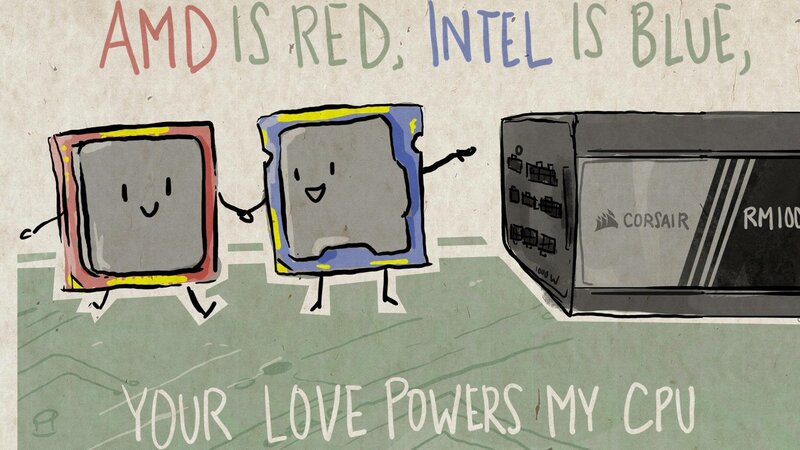 AMD IS RED, INTEL IS BLUE,
CORSAIR
RM100
1000 W
YOUR LOVE POWERS MY CPU